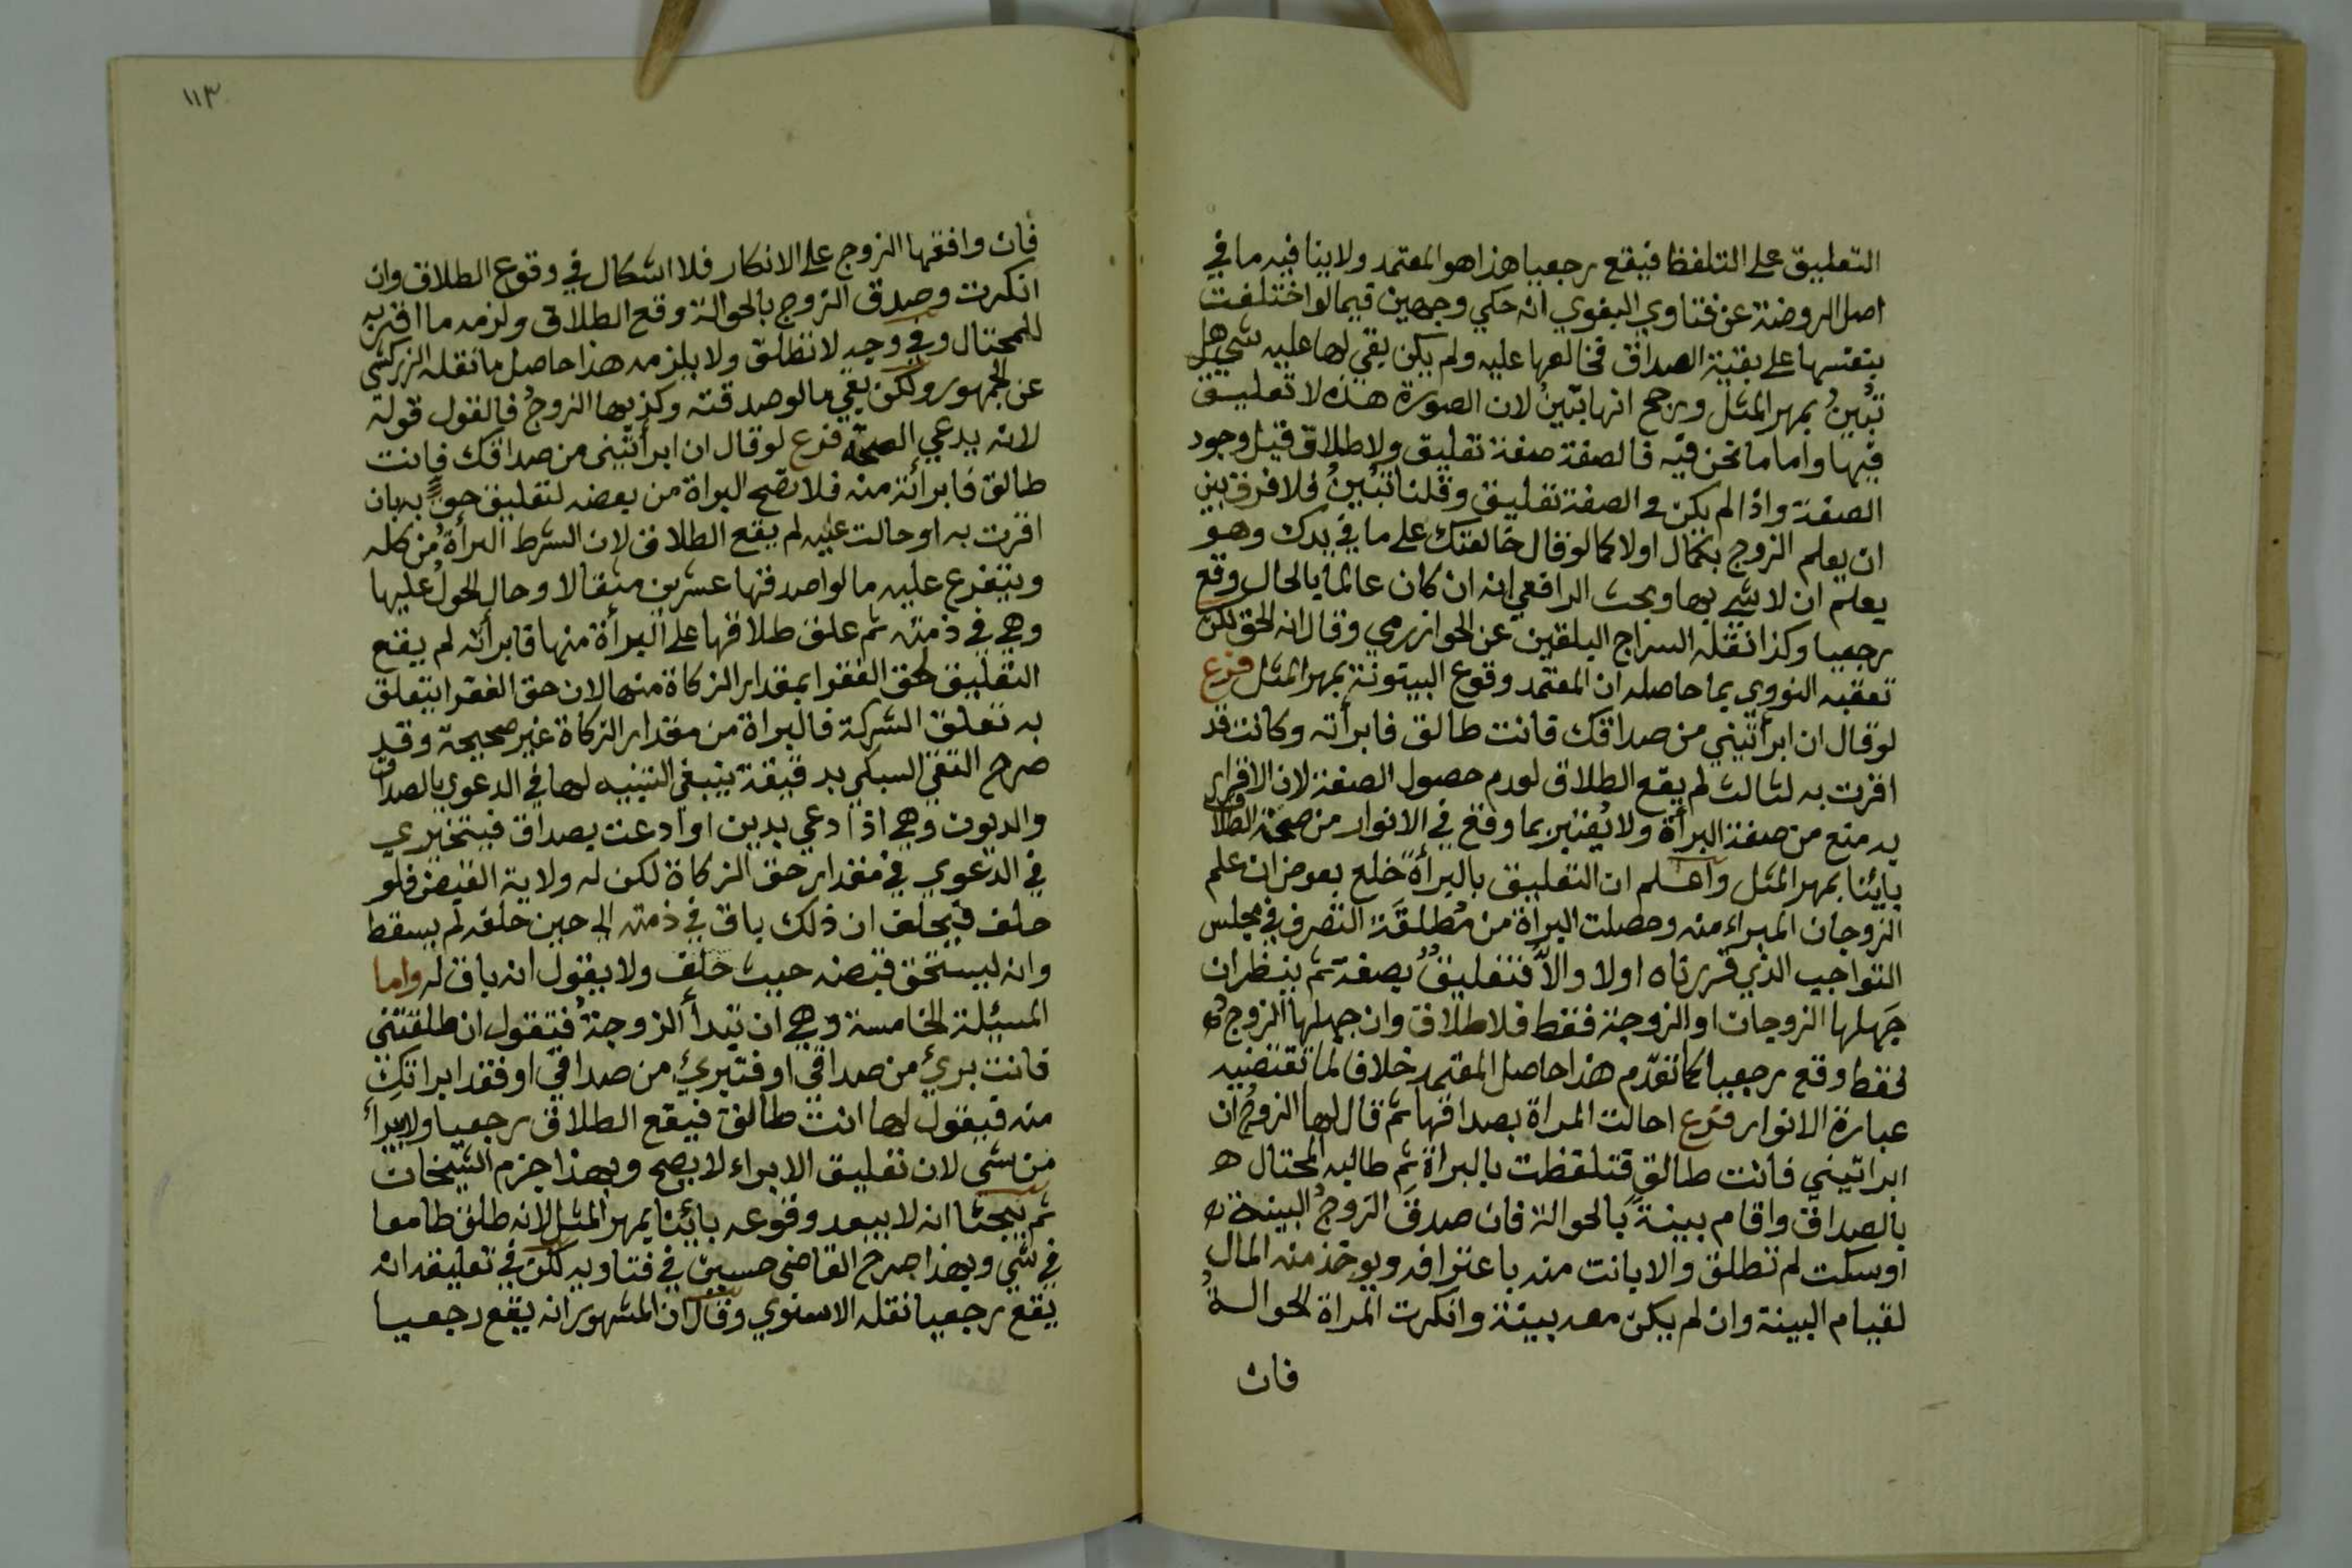 التعليق على التلفظ فيقع رجعيا هذا هو المعتمد ولا ينافيه ما في
اصل الروضة عن فتاوي البغوي انه حكي وجهين فيما لو اختلعت
بنفسها على بقية الصداق فخالعها عليه ولم يكن بقي لها عليه شي هل
تبين بمهر المثل ورجح انها تبين لان الصورة هذه لا تعليق
فيها واما ما نحن فيه فالصفة صفة تعليق ولا طلاق قبل وجود
الصفة واذا لم يكن في الصفة تعليق وقلنا تبين فلا فرق بين
ان يعلم الزوج بالحال اولا كما لو قال خالعتك على ما في يدك وهو
يعلم ان لا شي بها وبحث الرافعي انه ان كان عالما بالحال وقع
رجعيا وكذا نقله السراج البلقيني عن الخوازرمي وقال انه الحق لكن
تعقبه النووي بما حاصله ان المعتمد وقوع البينونة بمهر المثل فرع
لو قال ان ابرأتيني من صداقك فانت طالق فابرأته وكانت قد
اقرت به لثالث لم يقع الطلاق لعدم حصول الصفة لان الاقرار
به منع من صفة البرأة ولا يغتر بما وقع في الانوار من صحة الطلاق
بائنا بمهر المثل واعلم ان التعليق بالبرأة خلع بعوض ان علم
الزوجان المبراء منه وحصلت البرأة من مطلقة التصرف في مجلس
التواجب الذي قررناه اولا والا فتعليق بصفة ثم ينظر ان
جهلها الزوجان او الزوجة فقط فلا طلاق وان جهلها الزوج
فقط وقع رجعيا كما تقدم هذا حاصل المعتمد خلاف لما تقتضيه
عبارة الانوار فرع احالت المراة بصداقها ثم قال لها الزوج ان
ابراتيني فانت طالق فتلفظت بالبراة ثم طالبه المحتال
بالصداق واقام بينة بالحوالة فان صدق الزوج البينة
او سكت لم تطلق والا بانت منه باعترافه ويوخذ منه المال
لقيام البينة وان لم يكن معه بينة وانكرت المراة الحوالة
فان
١١٣
فان وافقها الزوج على الانكار فلا اشكال في وقوع الطلاق وان
انكرت وصدق الزوج بالحوالة وقع الطلاق ولزمه ما اقر به
للمحتال وفي وجه لا تطلق ولا يلزمه هذا حاصل ما نقله الزركشي
عن الجمهور ولكن بقي ما لو صدقته وكذبها الزوج فالقول قوله
لانه يدعي الصحة فرع لو قال ان ابرأتيني من صداقك فانت
طالق فابرأته منه فلا تصح البراة من بعضه لتعليق حق به بان
اقرت به او حالت عليه لم يقع الطلاق لان الشرط البرأة من كله
ويتفرع عليه ما لو اصدقها عشرين مثقالا وحال الحول عليها
وهي في ذمته ثم علق طلاقها على البرأة منها فابرأته لم يقع
التعليق لحق الفقرا بمقدار الزكاة منها لان حق الفقرا يتعلق
به تعلق الشركة فالبراة من مقدار الزكاة غير صحيحة وقد
صرح التقي السبكي بدقيقة ينبغي التنبيه لها في الدعوي بالصداق
والديون وهي اذا ادعي بدين او ادعت بصداق فيتحري
في الدعوي في مقدار حق الزكاة لكن له ولاية القبض فلو
حلف فيحلف ان ذلك باق في ذمته الي حين حلفه لم يسقط
وانه ليستحق قبضه حيث حلف ولا يقول انه باق له واما
المسيلة الخامسة وهي ان تبدأ الزوجة فتقول ان طلقتني
فانت بريء من صداقي او فتبريء من صداقي او فقد ابراتك
منه فيقول لها انت طالق فيقع الطلاق رجعيا ولا يبرأ
من شي لان تعليق الابراء لا يصح وبهذا جزم الشيخان
ثم بحثا انه لا يبعد وقوعه بائنا بمهر المثل لانه طلق طامعا
في شي وبهذا صرح القاضي حسين في فتاويه لكن في تعليقه انه
يقع رجعيا نقله الاسنوي وقال ان المشهور انه يقع رجعيا